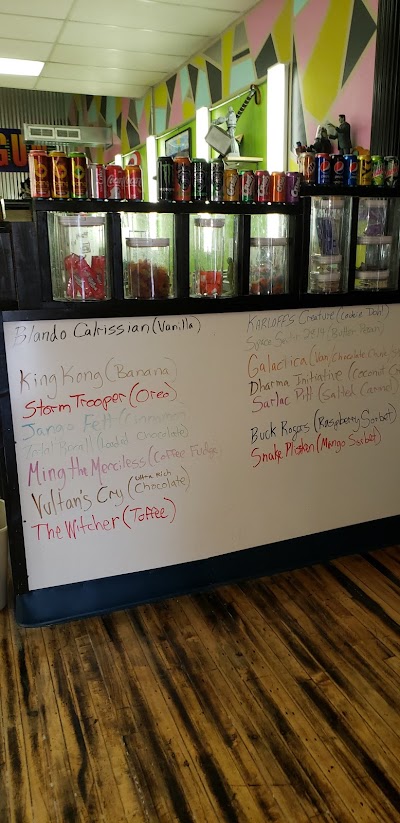 Blando Calrissian (Vanilla)
King Kong (Banana)
Storm Trooper (Oreo)
Jango Fett (Cinnamon
Total Recall (Loaded Chocolate)
Ming the Merciless (Coffee Fudge)
Vultan's Cry (Ultra Rich Chocolate)
The Witcher (Toffee)
Karloff's Creature (
Space Sector 2814 (Butter Pecan)
Galactica (Van/Chocolate Chunk
Dharma Initiative (Coconut
Sarlac Pitt (Salted Caramel
Buck Rogers (Raspberry Sorbet)
Snake Plisken (Mango Sorbet)